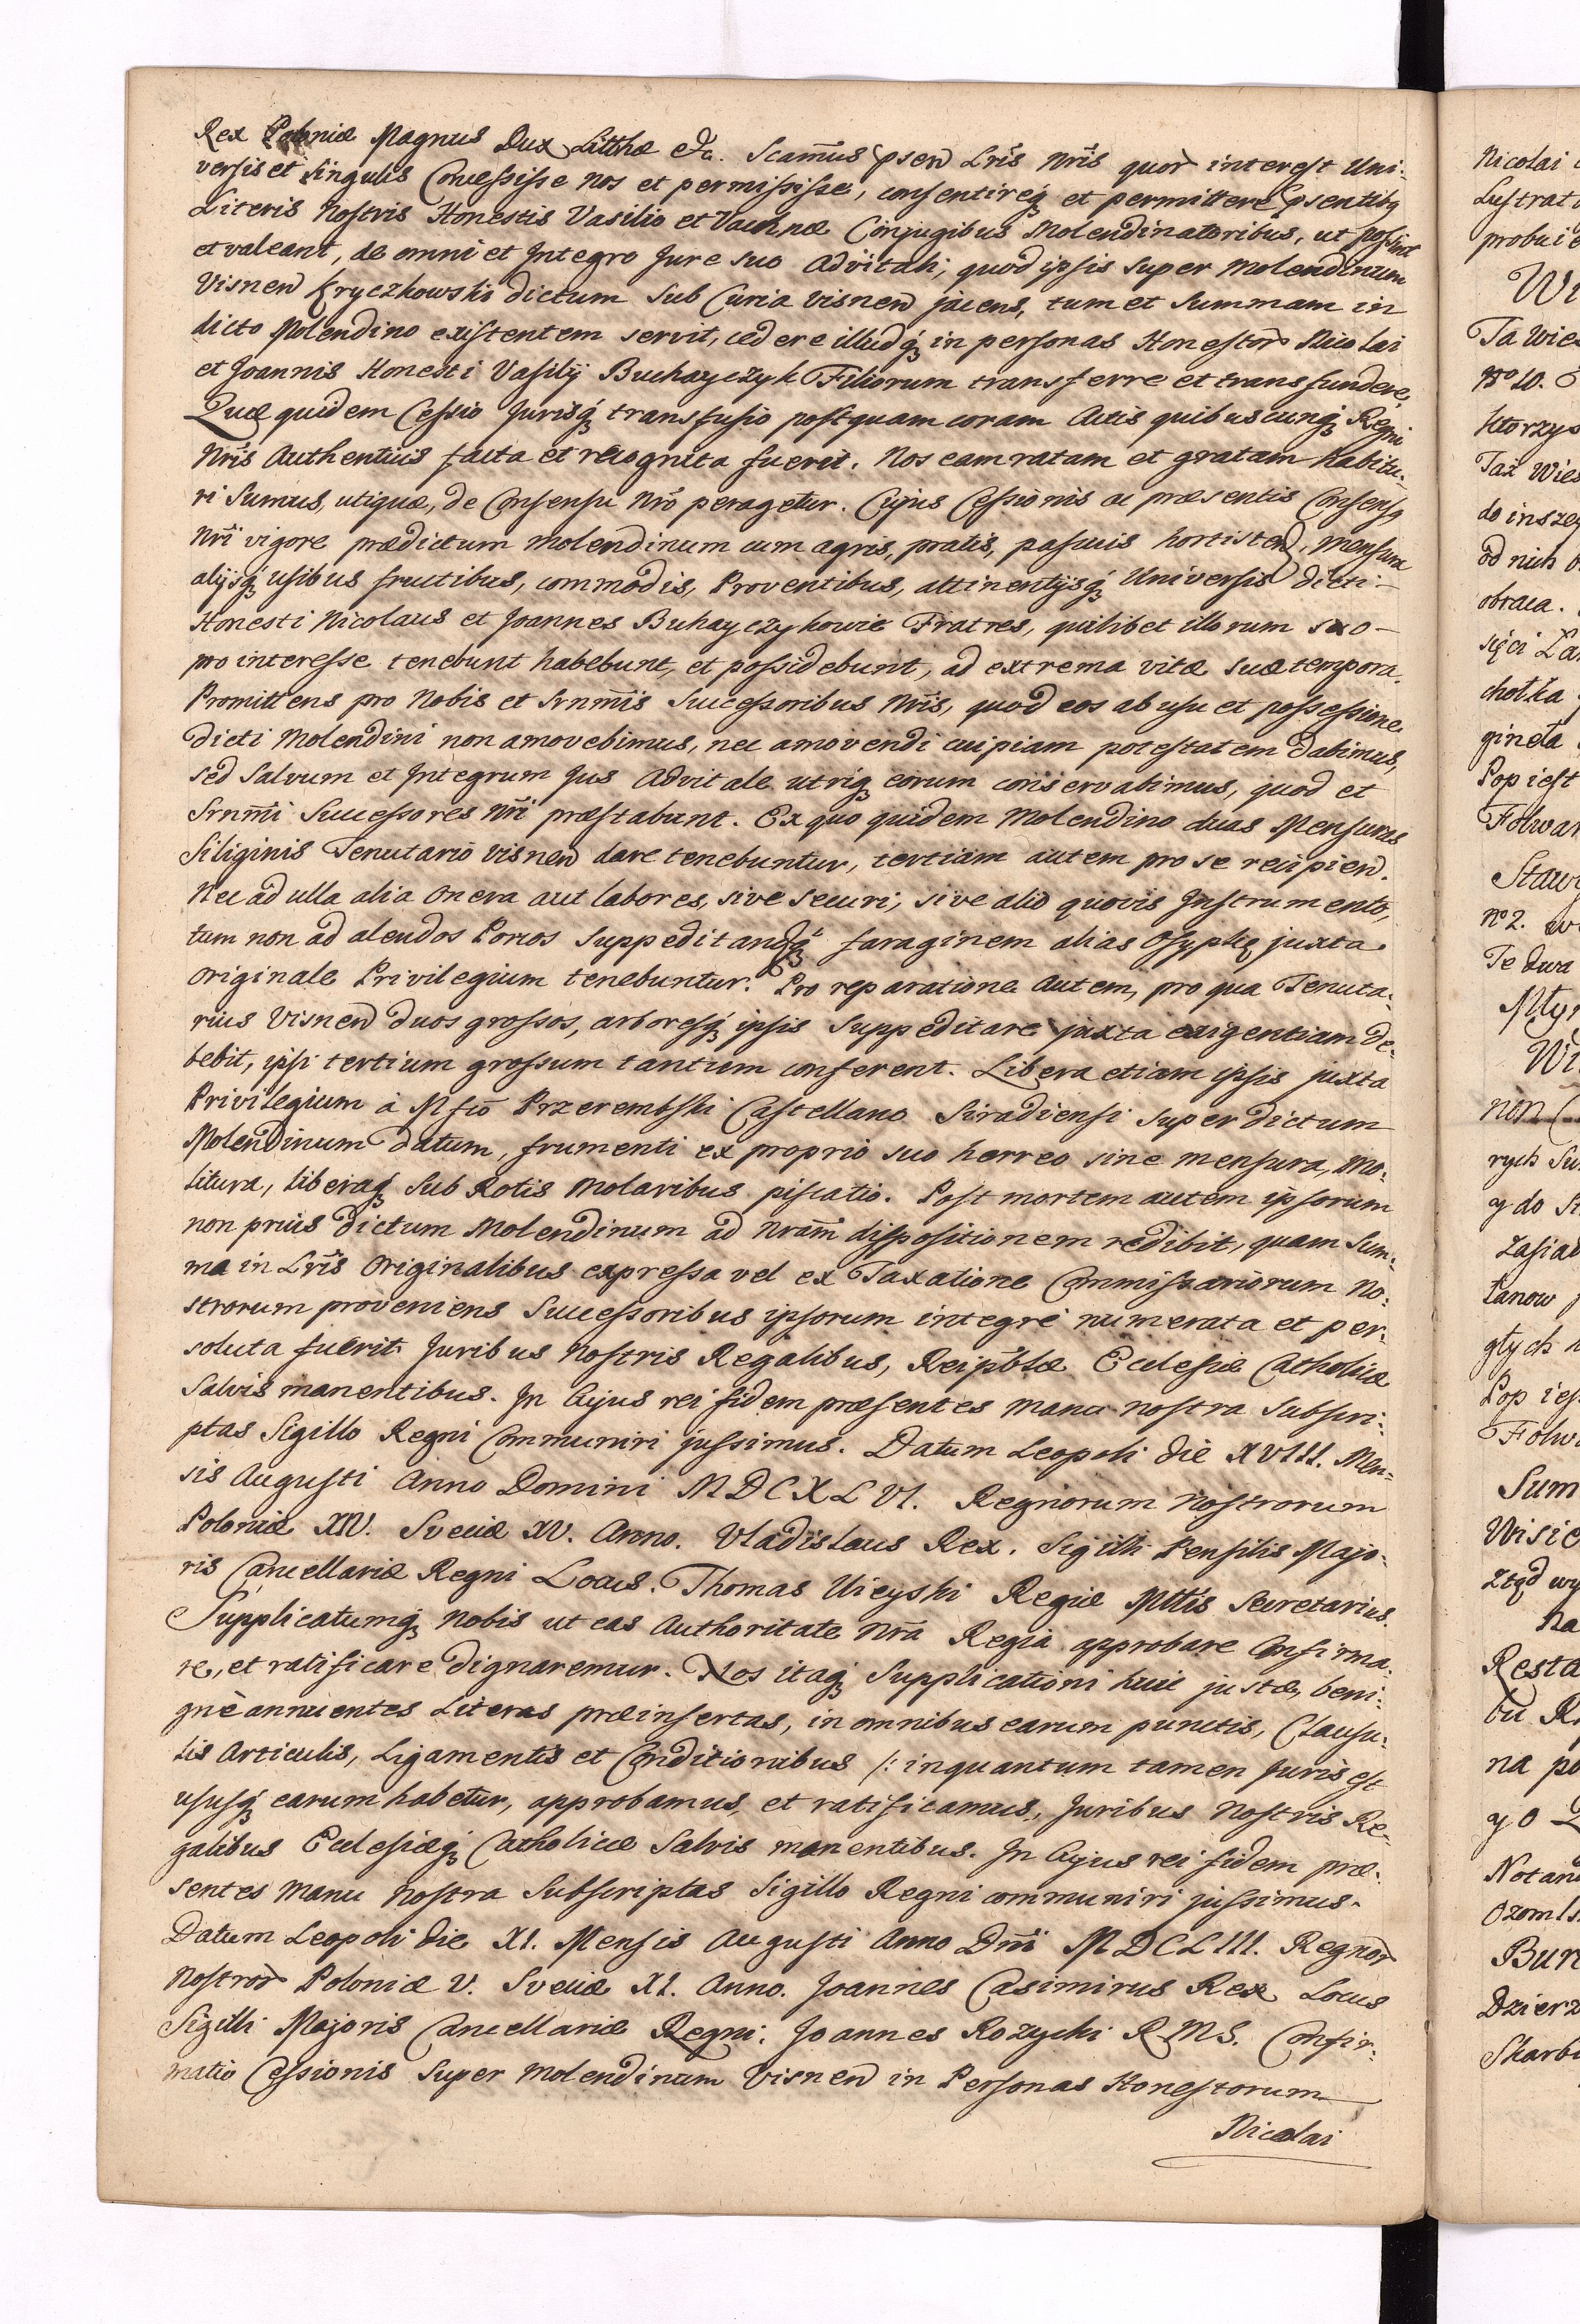 Rex Poloniæ Magnus Dux Litthæ etc. Scamus psen Lris Nris quor interest Uni:
versis et Singulis Concessisse Nos et permisisse, consentireq et permittere psentibq
Literis Nostris Honestis Vasilio et Vachnæ Conjugibus Molendinatoribus, ut possint
et valeant, de omni et Integro Jure suo Advitali, quod ipsis super Molendinum
Visnen Kryczkowski dictum sub Curia Visnen jacens, tum et summam in
dicto Molendino existentem servit, cedere illudq in personas Honestor Nicolai
et Joannis Honesti Vasilij Buchayczyk Filiorum transferre et transfundere,
Quæ quidem Cessio Jurisq transfusio postquam coram Actis quibuscunq Regni
Nris Authenticis facta et recognita fuerit. Nos eam ratam et gratam habitu:
ri Sumus, utiquæ, de Consensu Nro peragetur. Cujus Cessionis ac præsentis Consensq
Nri vigore prædictum Molendinum cum agris, pratis, pascuis hortisten, mensura
alijsq usibus fructibus, commodis, Proventibus, attinentijsq Universis dicti
Honesti Nicolaus et Joannes Buhayczykowie Fratres, quilibet illorum suo
pro interesse tenebunt habebunt, et possidebunt, ad extrema vitæ suæ tempora.
Promittens pro Nobis et Srnmis Successoribus Nris, quod eos ab usu et possessione
dicti Molendini non amovebimus, nec amovendi cuipiam potestatem dabimus,
sed Salvum et Integrum Jus Advitale utriq eorum conservabimus, quod et
Srnmi Successores Nri præstabunt. Ex quo quidem Molendino duas Mensuras
Siliginis Tenutario Visnen dare tenebuntur, tertiam autem pro se recipien.
Nec ad ulla alia onera aut labores, sive securi, sive alio quovis Instrumento,
tum non ad alendos Porcos suppeditandq faraginem alias Osypkę juxta
Originale Privilegium tenebuntur. Pro reparatione autem, pro qua Tenuta:
rius Visnen duos grossos, arboresq ipsis suppeditare juxta exigentiam De:
bebit, ipsi tertium grossum tantum conferent. Libera etiam ipsis juxta
Privilegium à Mfco Przerembski Castellano Siradiensi super dictum
Molendinum datum, frumenti ex proprio suo horreo sine mensura, Mo:
litura, liberaq sub Rotis Molaribus piscatio. Post mortem autem ipsorum
non prius dictum Molendinum ad Nram dispositionem redibit, quam Sum:
ma in Lris Originalibus expressa vel ex Taxatione Commissariorum No:
strorum proveniens Successoribus ipsorum integrè numerata et per:
soluta fuerit Juribus Nostris Regalibus, Reipblæ Ecclesiæ Catholicæ
Salvis manentibus. In Cujus rei fidem præsentes manu nostra Subscri:
ptas Sigillo Regni Communiri jussimus. Datum Leopoli die XVIII. Men:
sis Augusti Anno Domini MDCXLVI. Regnorum Nostrorum
Poloniæ XIV. Sveciæ XV. Anno. Vladislaus Rex. Sigilli Pensilis Majo:
ris Cancellariæ Regni Locus. Thomas Uieyski Regiæ Mttis Secretarius.
Supplicatumq Nobis ut eas Authoritate Nra Regia approbare Confirma:
re, et ratificare dignaremur. Nos itaq Supplicationi huic justæ, beni:
gnè annuentes Literas præinsertas, in omnibus earum punctis, Clausu:
lis Articulis, Ligamentis et Conditionibus /: inquantum tamen Juris est
ususq earum habetur, approbamus, et ratificamus, Juribus Nostris Re:
galibus Ecclesiæq Catholicæ Salvis manentibus. In Cujus rei fidem præ:
sentes Manu Nostra Subscriptas Sigillo Regni communiri jussimus.
Datum Leopoli die XI. Mensis Augusti Anno Dni MDCLIII. Regnor
Nostror Poloniæ V. Sveciæ XI. Anno. Joannes Casimirus Rex Locus
Sigilli Majoris Cancellariæ Regni. Joannes Rozycki RMS. Confir:
matio Cessionis super Molendinum Visnen in Personas Honestorum
Nicolai